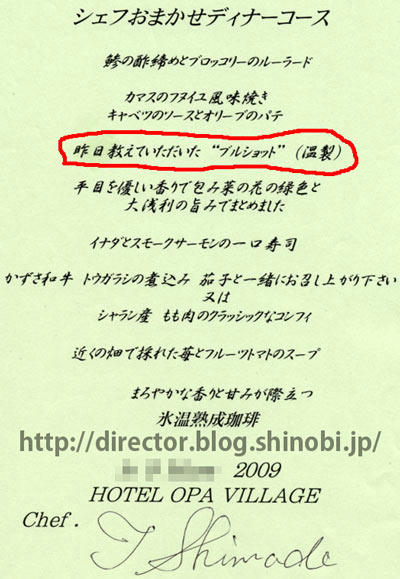 シェフおまかせディナーコース
鯵の酢締めとブロッコリーのルーラード
カマスのフヌイユ風味焼き
キャベツのソースとオリーブのパテ
昨日教えていただいた "ブルショット" (温製)
平目を優しい香りで包み菜の花の緑色と
大浅利の旨みでまとめました
イナダとスモークサーモンの一口寿司
かずさ和牛 トウガラシの煮込み 茄子と一緒にお召し上がり下さい
又は
シャラン産 もも肉のクラッシックなコンフィ
近くの畑で採れた苺とフルーツトマトのスープ
まろやかな香りと甘みが際立つ
氷温熟成珈琲
http://director.blog.shinobi.jp/
2009
HOTEL OPA VILLAGE
Chef .
T Shimada